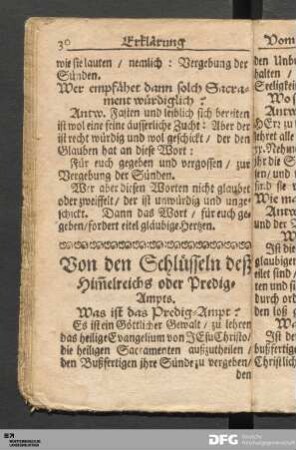 30 Erklärung
wie sie lauten / nemlich : Vergebung der
Sünden.
Wer empfähet dann solch Sacra-
ment würdiglich ?
Antw. Fasten und leiblich sich bereiten
ist wol eine feine äusserliche Zucht: Aber der
ist recht würdig und wol geschickt / der den
Glauben hat an diese Wort:
Für euch gegeben und vergossen / zur
Vergebung der Sünden.
Wer aber diesen Worten nicht glaubet
oder zweiffelt / der ist unwürdig und unge-
schickt. Dann das Wort / für euch ge-
geben / fordert eitel gläubige Hertzen.
Von den Schlüsseln deß
Him̃elreichs oder Predig-
Ampts.
Was ist das Predig-Ampt ?
Es ist ein Göttlicher Gewalt / zu lehren
das heilige Evangelium von JEsu Christo/
die heiligen Sacramenten außzutheilen /
den Bußfertigen ihre Sünde zu vergeben/
den
Vom
den Unbu
halten /
Seeligkei
Wo s
Antw
HErz zu
lehret alle
Namen
sind sie v
Wie ma
Antw
und der
W
Ist die
glaubigen
eilet
ten und si
durch ord
den loß g
W
Ist de
bußfertige
Christlich
DFG Deutsche
Forschungsgemeinschaft